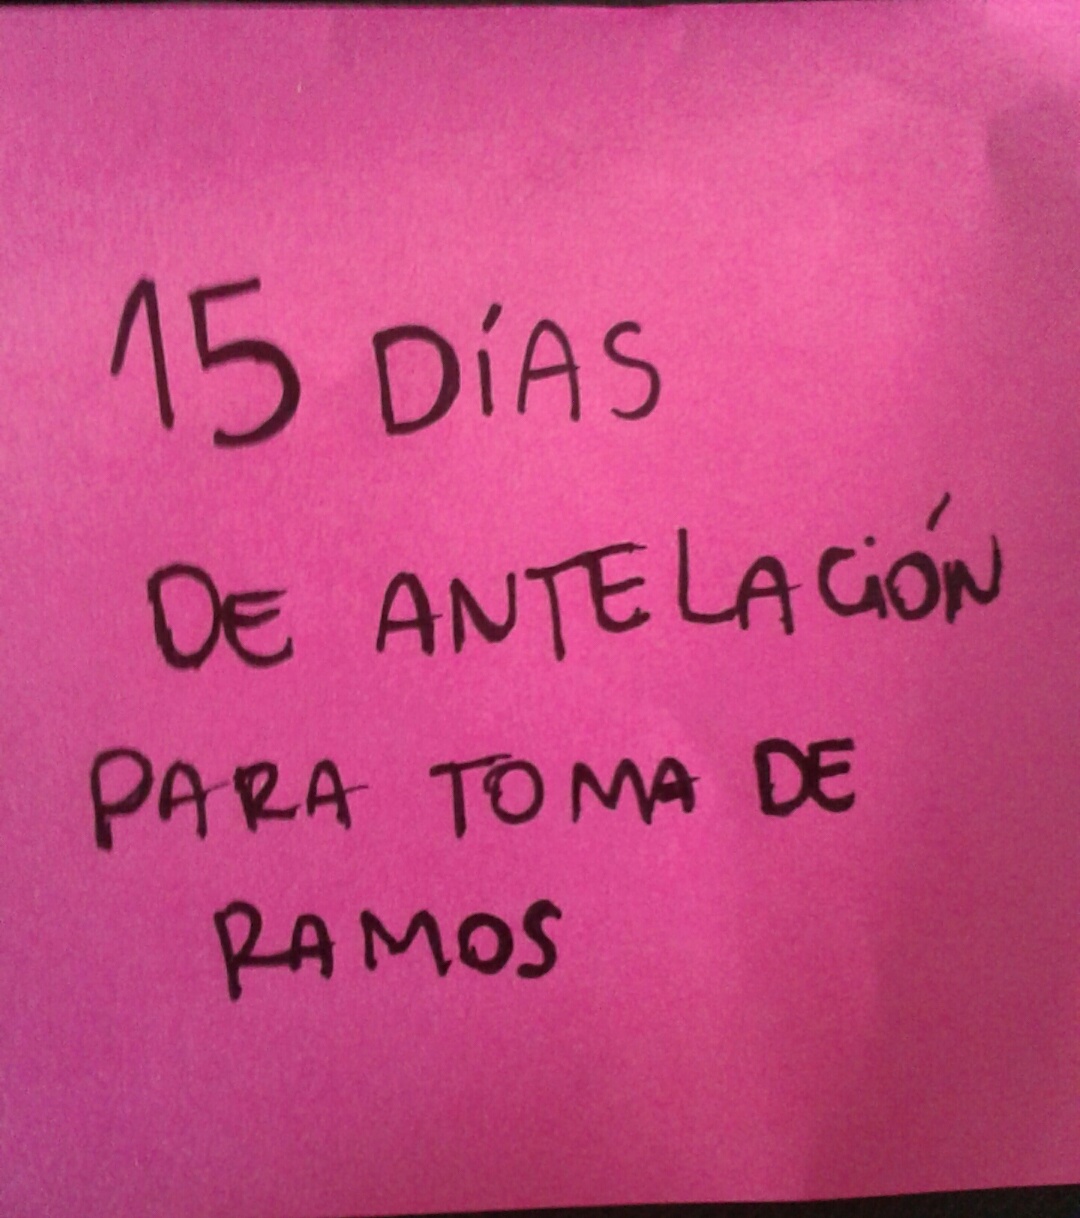 15 DÍAS
DE ANTELACIÓN
PARA TOMA DE
RAMOS